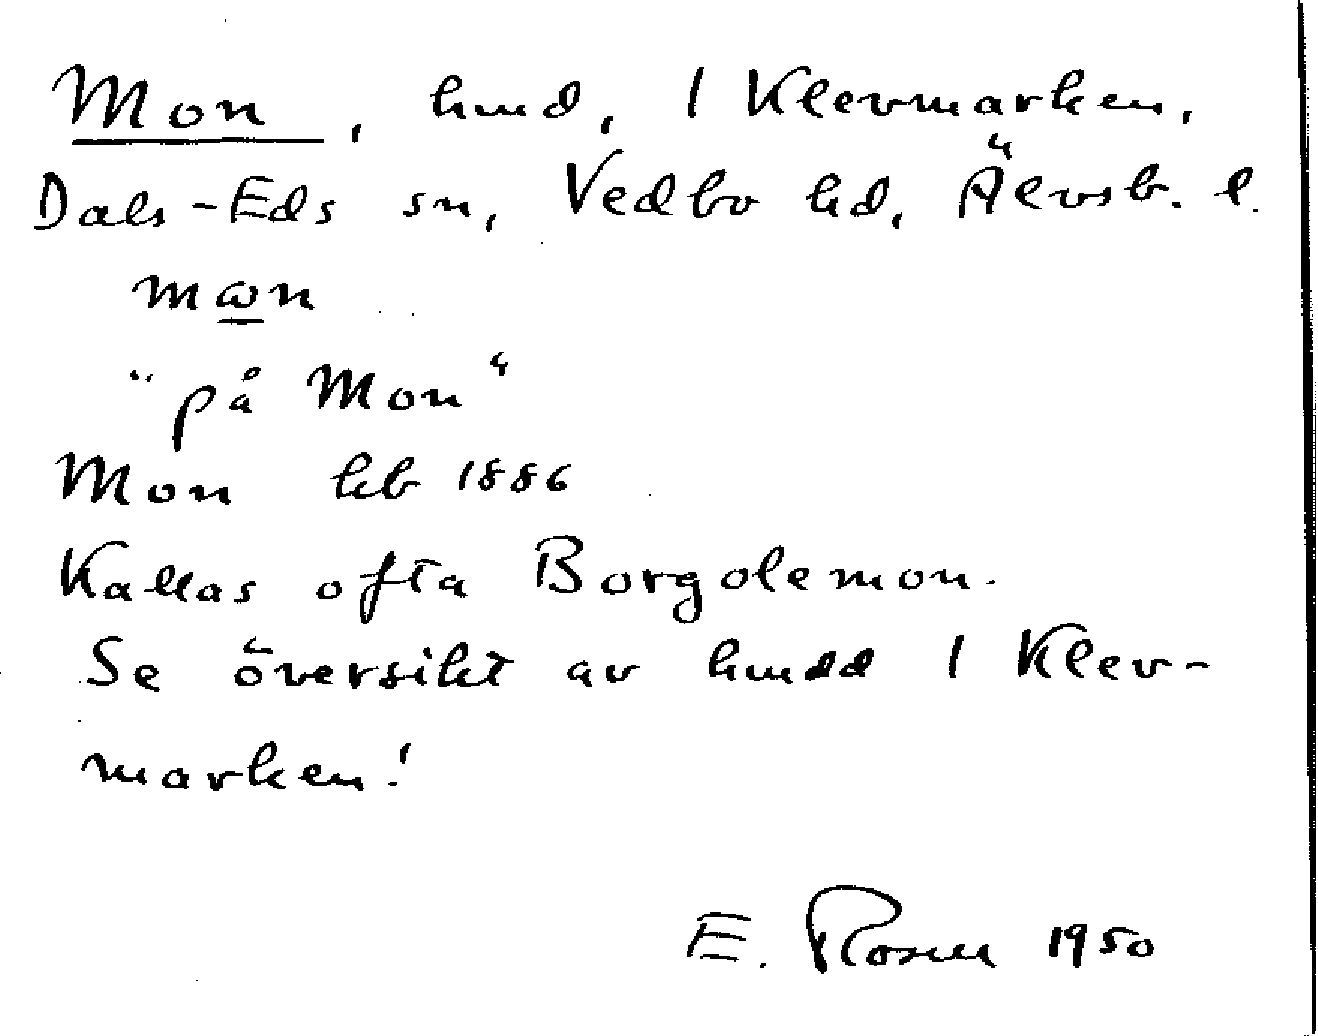 Mon, hmd, 1 Klevmarken,
Dals-Eds sn, Vedbo hd, Älvsb. l.
mωn
"på Mon"
Mon hb 1886
Kallas ofta Borgolemon.
Se översikt av hmdd 1 Klev-
marken!
E. Rosen 1950